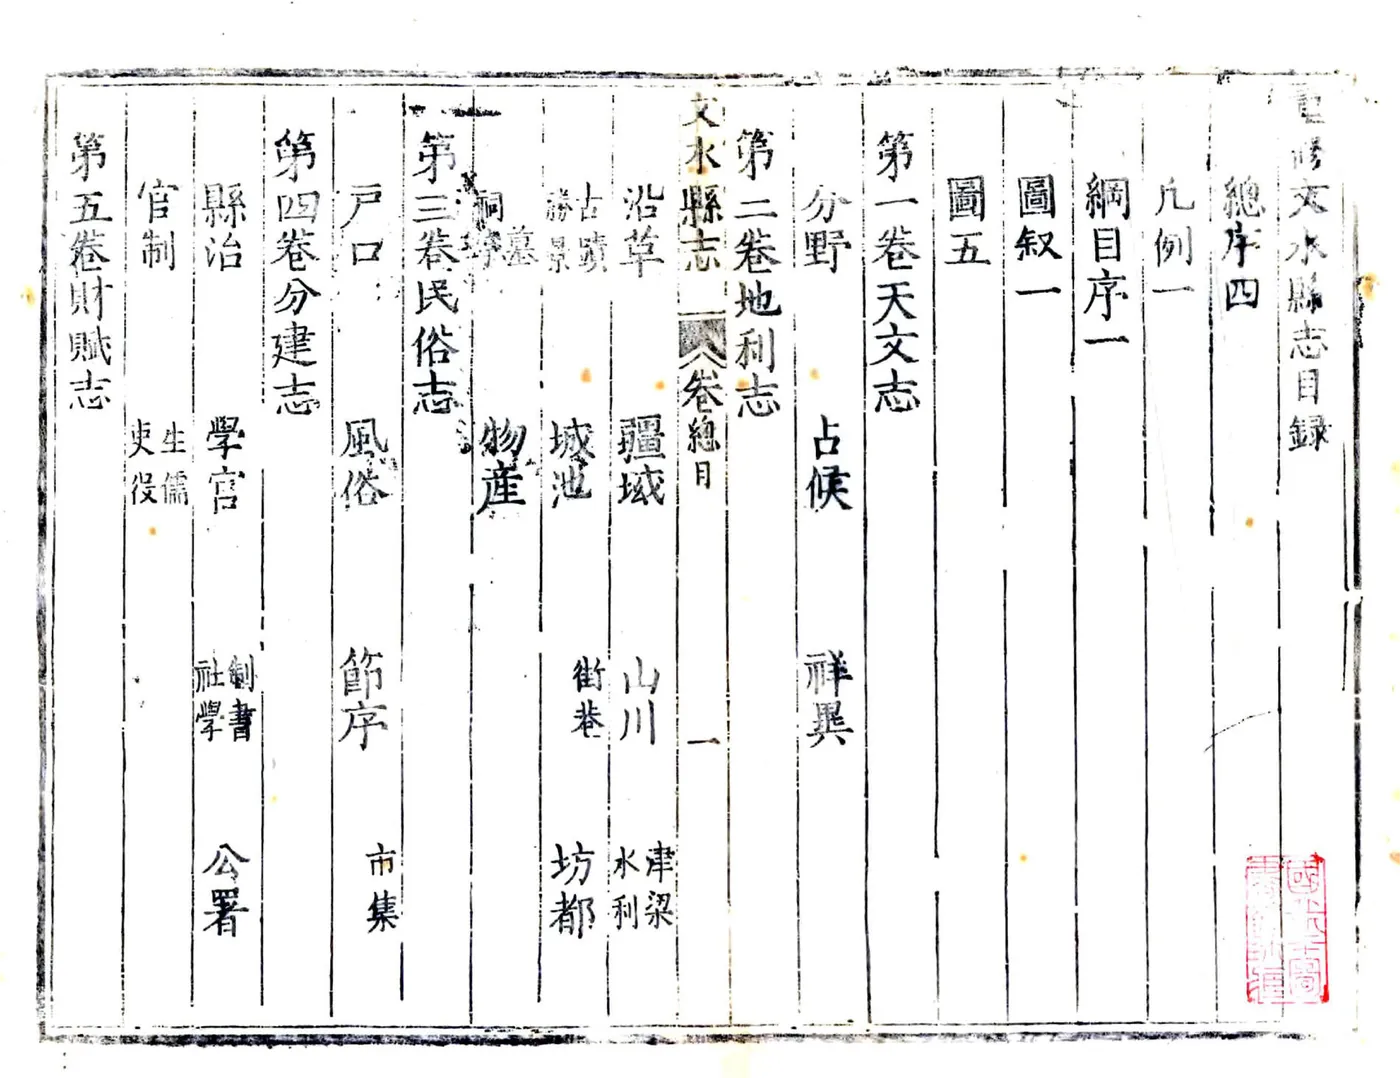 重修文水縣志目錄
總序四
凡例一
綱目序一
圖叙一
圖五
第一卷天文志
分野 占候 祥異
第二卷地利志
文水縣志 卷總目 一
沿革 疆域 山川 津梁 水利
古蹟 勝景 城池 街巷 坊都
墓 祠 物産
第三卷民俗志
戸口 風俗 節序 市集
第四卷分建志
縣治 學宮 制書 社學 公署
官制 生儒 吏役
第五卷財賦志
國立北平圖書館收藏